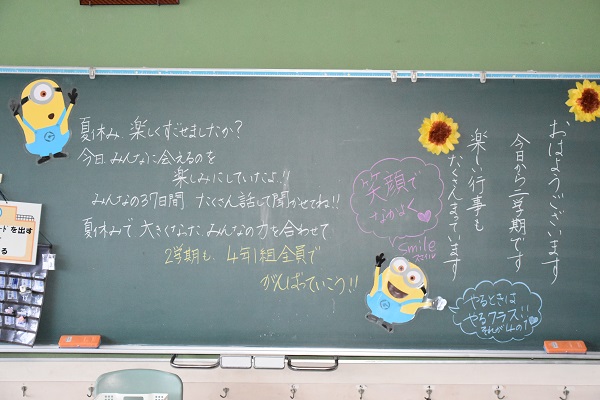 おはようございます
今日から二学期です
楽しい行事も
たくさんまっています
夏休み 楽しくすごせましたか?
今日 みんなに会えるのを
楽しみにしていたよ!!
みんなの37日間 たくさん話して聞かせてね!!
夏休みで大きくなった みんなの力を合わせて
2学期も、4年1組全員で
がんばっていこう!!
笑顔で
なかよく
smile
スマイル
やるときは
やるクラス!!
それが4の1
ートを出す
る